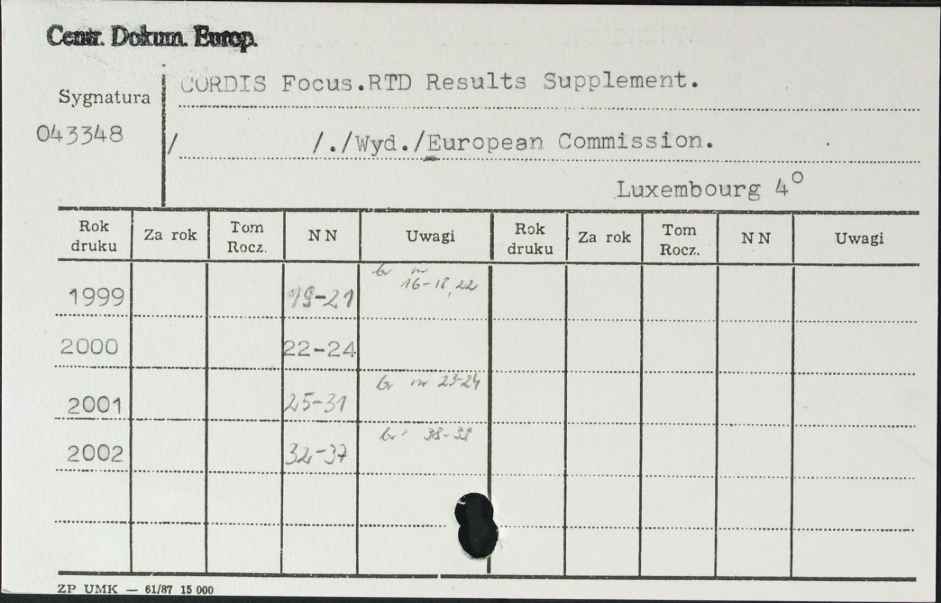 Centr. Dokum. Europ.
CORDIS Focus.RTD Results Supplement.
Sygnatura
043348
/ /./Wyd./European Commission.
Luxembourg 4°
Rok druku Za rok Tom Rocz. NN Uwagi Rok druku Za rok Tom Rocz. NN Uwagi
br nr 16-18,22
1999 19-21
2000 22-24
br nr 23-24
2001 25-31
br
2002 32-37
ZP UMK — 61/87 15 000